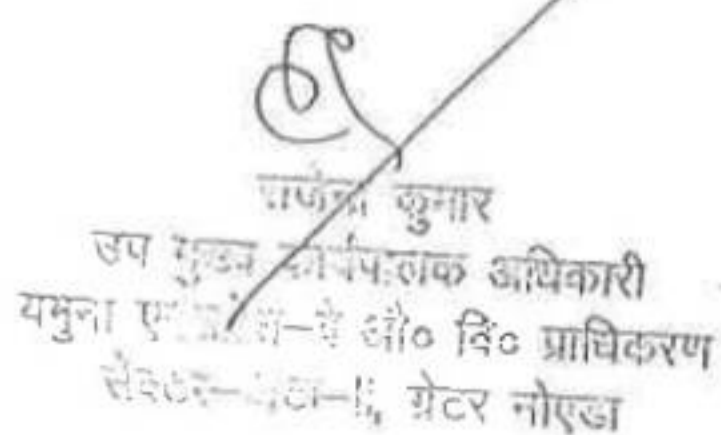 कुमार
उप मुख्य कार्यपालक अधिकारी
यमुना एक्सप्रेस-वे औ० वि० प्राधिकरण
सेक्टर- ग्रेटर नोएडा